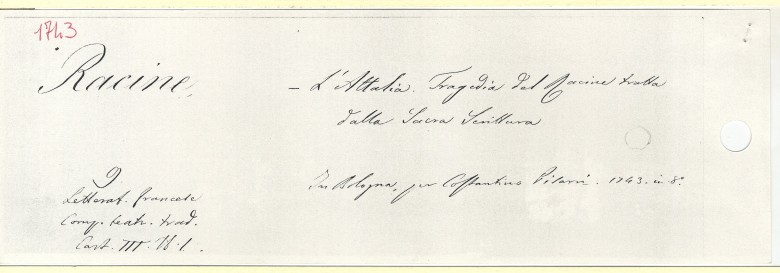 1743
Racine,
— L'Attalia. Tragedia del Racine tratta
dalla Sacra Scrittura
In Bologna, per Costantino Pisarri. 1743. in 8.°
9
Letterat. francese
Comp. teatr. trad.
Cart. III. N. 1.